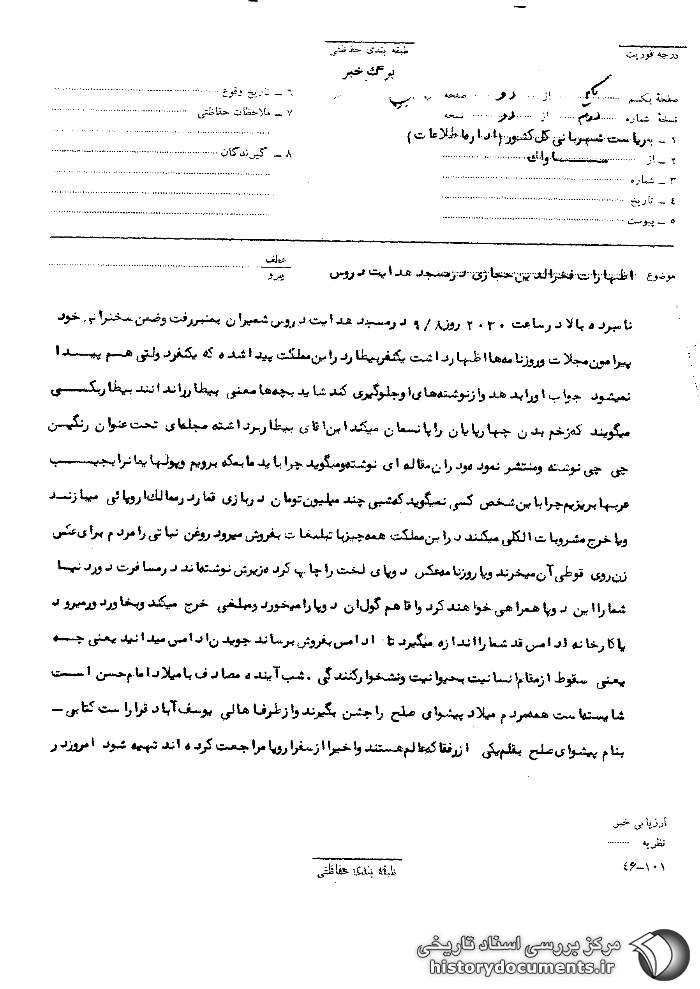 طبقه بندی حفاظتی
درجه فوریت
برگ خبر
صفحهٔ یکم از دو صفحه
نسخهٔ شماره دوم از دو نسخه
۱ – به ریاست شهربانی کل کشور (اداره اطلاعات)
۲ – از ساواک
۳ – شماره
۴ – تاریخ
۵ – پیوست
۶ – تاریخ وقوع
۷ – ملاحظات حفاظتی
۸ – گیرندگان
موضوع اظهارات فخرالدین حجازی در مسجد هدایت دروس
عطف
پیرو
نامبرده بالا در ساعت ۲۰۳۰ روز ۹/۸ در مسجد هدایت دروس شمیران بمنبر رفت و ضمن سخنرانی خود
پیرامون مجلات و روزنامه‌ها اظهار داشت یکنفر بیطار در این مملکت پیدا شده که یکنفر دولتی هم پیدا
نمیشود جواب او را بدهد و از نوشته‌های او جلوگیری کند شاید بچه‌ها معنی بیطار را ندانند بیطار بکسی
میگویند که زخم بدن چهارپایان را پانسمان میکند این آقای بیطار برداشته مجله‌ای تحت عنوان رنگین
چی چی نوشته و منتشر نموده در آن مقاله ای نوشته و میگوید چرا باید ما بمکه برویم و پولهایمانرا بجیب
عربها بریزیم چرا باین شخص کسی نمیگوید که شبی چند میلیون تومان در بازی قمار در ممالک اروپائی میبازند
و یا خرج مشروبات الکلی میکنند در این مملکت همه چیز با تبلیغات بفروش میرود روغن نباتی را مردم برای عکس
زن روی قوطی آن میخرند و یا روزنامه عکس دوپای لخت را چاپ کرده زیرش نوشته‌اند در مسافرت دور دنیا
شما را این دوپا همراهی خواهند کرد واقاهم گول ان دوپا را میخورد و مبلغی خرج میکند و بخاور دور میرود
یا کارخانه ادامس قد شما را اندازه میگیرد تا ادامس بفروش برساند جویدن ادامس میدانید یعنی چه
یعنی سقوط از مقام انسانیت بحیوانیت و نشخوارکنندگی . شب آینده مصادف با میلاد امام حسن است
شایسته است همه مردم میلاد پیشوای صلح را جشن بگیرند و از طرف اهالی یوسف آباد قرار است کتابی –
بنام پیشوای صلح بقلم یکی از رفقا که عالم هستند و اخیرا از سفر اروپا مراجعت کرده اند تهیه شود امروز در
ارزیابی خبر
نظریه
۴۶–۱۰۱
طبقه بندی حفاظتی
مرکز بررسی اسناد تاریخی
historydocuments.ir